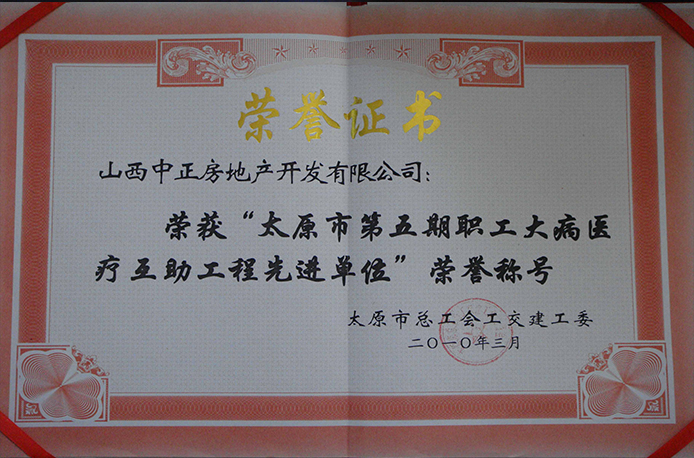 荣誉证书
山西中正房地产开发有限公司：
荣获“太原市第五期职工大病医
疗互助工程先进单位”荣誉称号
太原市总工会工交建工委
二〇一〇年三月